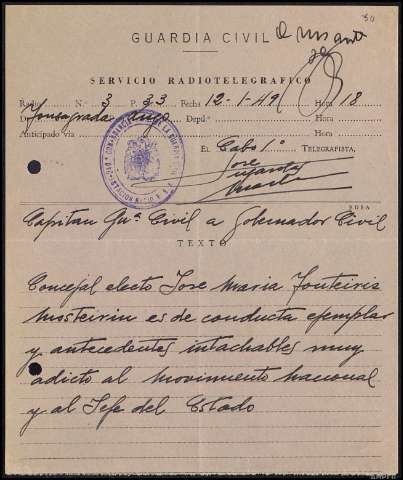 30
GUARDIA CIVIL
SERVICIO RADIOTELEGRAFICO
Radio N.º 3 P. 33 Fecha 12-1-49 Hora 18
De Fonsagrada Lugo Depd.ª Hora
Anticipado vía Hora
El Cabo 1º TELEGRAFISTA,
Jose
Capitan Guª Civil a Gobernador Civil
TEXTO
Concejal electo Jose Maria Fonteiris
Mosteirin es de conducta ejemplar
y antecedentes intachables muy
adicto al Movimiento Nacional
y al Jefe del Estado